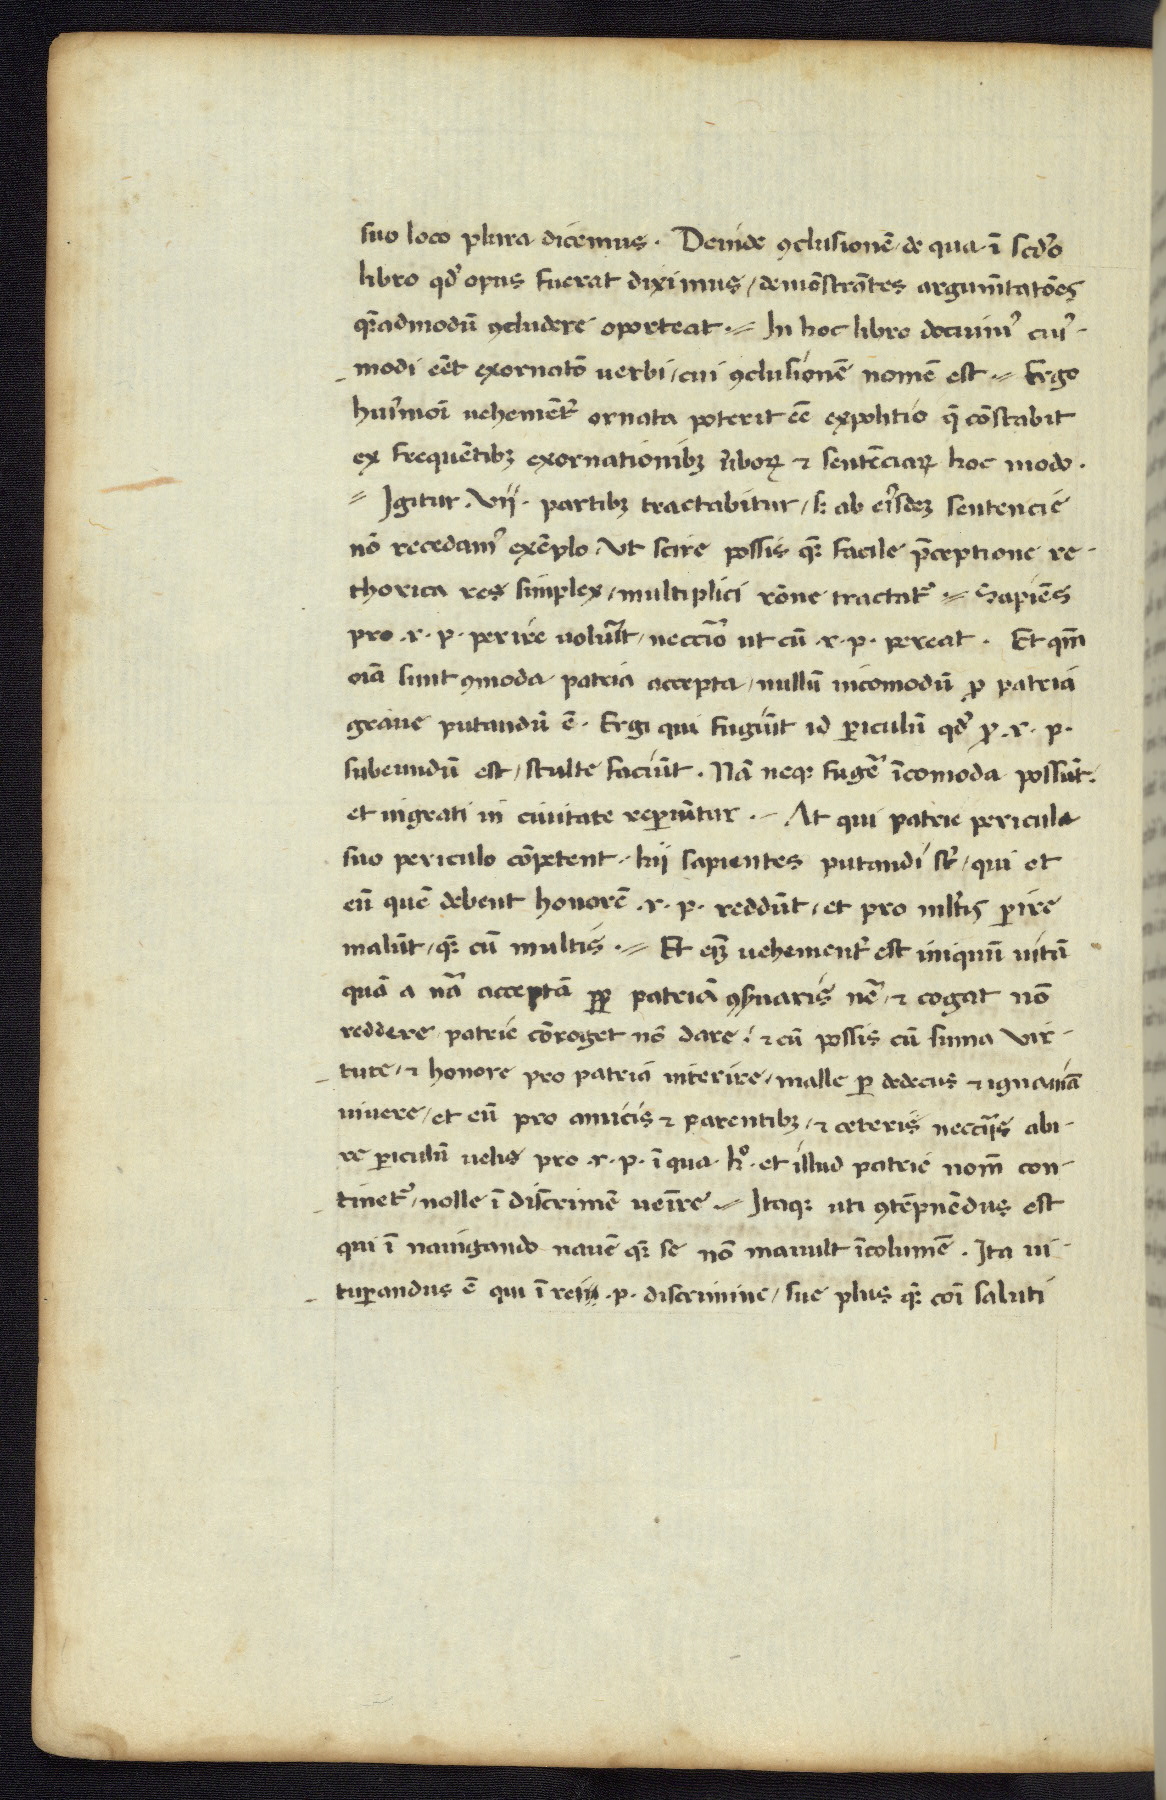 suo loco plura dicemus. Deinde ꝯclusionē de qua ī scd̓o
libro qd̓ opus fuerat diximus / demōstrātes argum̄tatōes
quēadmodū ꝯcludere oporteat. In hoc libro docuim᾽ cui᾽-
modi eēt exornatō uerbi / cui ꝯclusionē nomē est. Ergo
hui᾽moī uehemēt᾽ ornata poterit eē expolitio q̄ cōstabit
ex frequētibꝫ exornationibꝫ u̓boꝝ ⁊ sentēciaꝝ hoc modo.
Igitur .vii. partibꝫ tractabitur / sꝫ ab ei᾽sdeꝫ sentencie
nō recedam᾽ exēplo / Vt scire possis qꝫ facile p̄ceptione re-
thorica res simplex / multiplici rōne tractat᾽. Sapiēs
pro .r. p. perire uolu̅it / neccio̅ ut cū .r. p. pereat. Et qm̄
oīa sunt ꝯmoda patria accepta / nullū incomodū ꝓ patria
graue putandū ē. Ergi qui fugiūt id ꝑiculū qd̓ ꝓ .r. p.
subeundū est / stulte faciūt. Nā neqꝫ fug̓e īcomoda possūt.
et ingrati in ciuitate reꝑiūtur. At qui patrie pericula
suo periculo cōpetent. hii sapientes putandi st̓ / qui et
eū quē debent honorē .r. p. reddūt / et pro ml̓tis ꝑire
malūt / qꝫ cū multis. Et eīꝫ uehement᾽ est iniquū uitā
quā a nā acceptā ꝓp patriā ꝯs̓uaris nē / ⁊ cogat nō
reddere / patrie cōroget nō dare: ⁊ cū possis cū suma vir-
tute / ⁊ honore pro patria interire / malle ꝑ dedecus ⁊ ignauiā
uiuere / et eū pro amicis ⁊ parentibꝫ / ⁊ ceteris necc̄iis abi-
re ꝑiculū uelis pro .r. p. ī qua .h̊. et illud patrie nom̄ con-
tinet᾽ / nolle ī discrimē ueīre. Itaqꝫ uti ꝯtēpnēdus est
qui ī nauigando nauē qꝫ se nō mauult īcolumē. Ita ui-
tuꝑandus ē qui ī rei .p. discrimine / sue plus qꝫ coī saluti